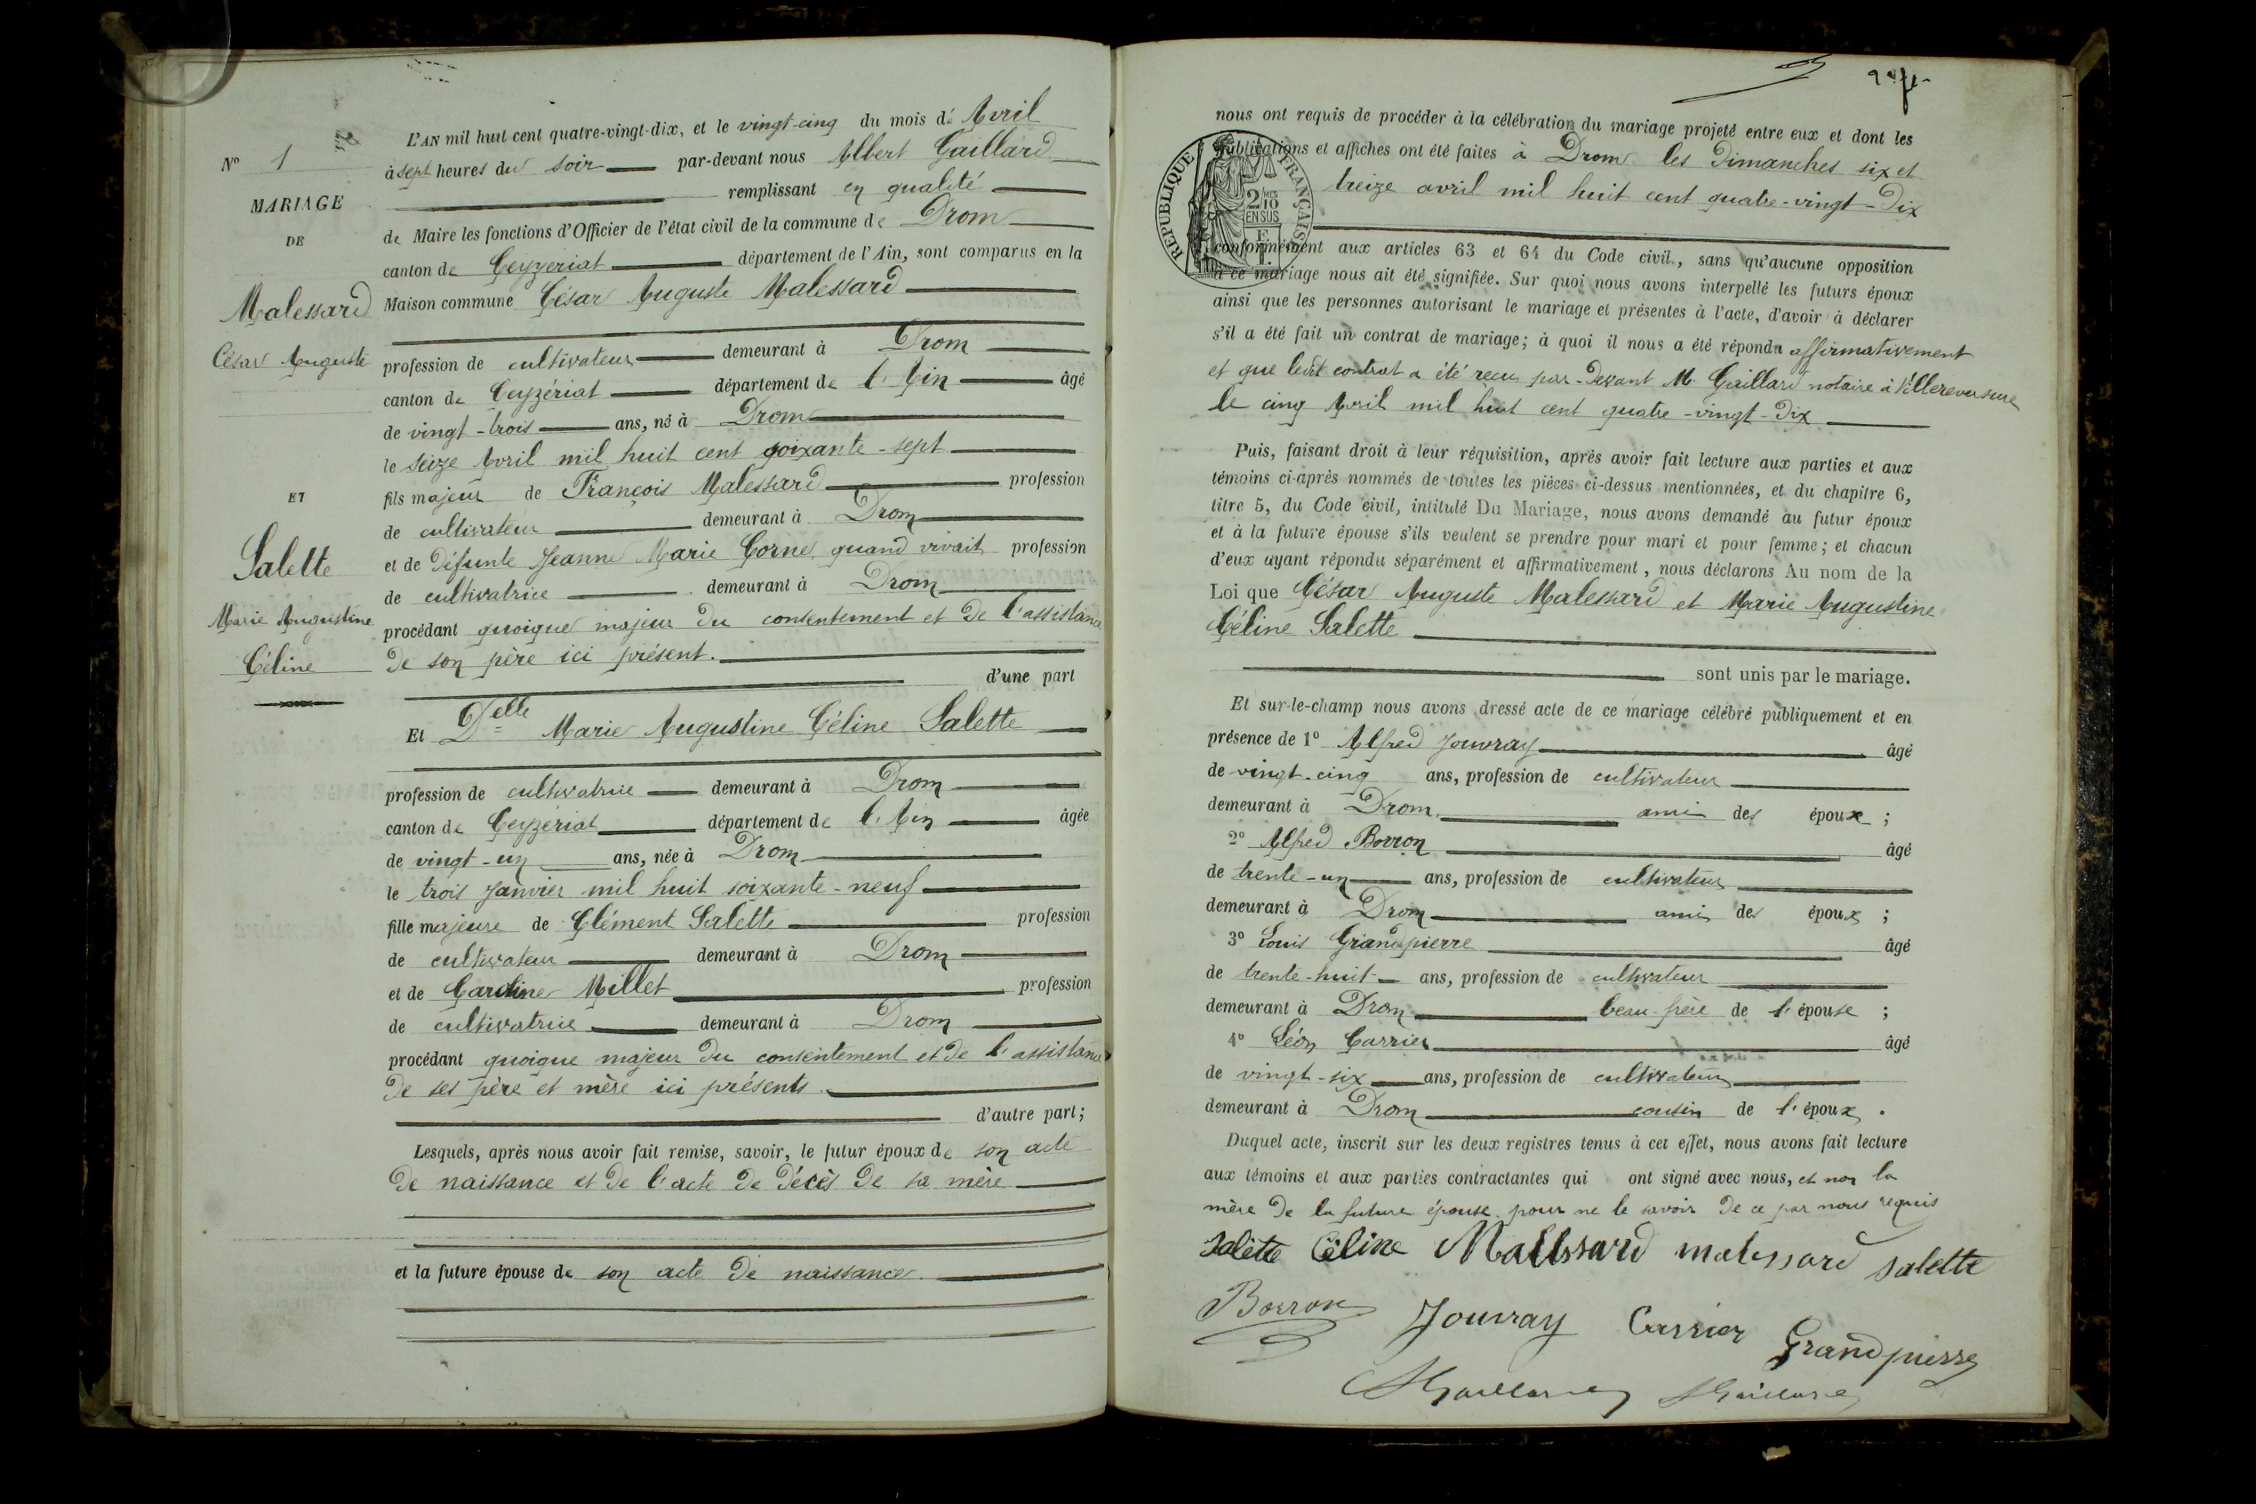 Nº 1
MARIAGE
DE
Malessard
César Auguste
ET
Salette
Marie Augustine
Céline
L'AN mil huit cent quatre-vingt-dix, et le vingt-cinq du mois d' Avril
à sept heures du soir par-devant nous Albert Gaillard
remplissant en qualité
de Maire les fonctions d'Officier de l'état civil de la commune de Drom
canton de Ceyzeriat département de l'Ain, sont comparus en la
Maison commune César Auguste Malessard
profession de cultivateur demeurant à Drom
canton de Ceyzériat département de l'Ain âgé
de vingt-trois ans, né à Drom
le seize Avril mil huit cent soixante-sept
fils majeur de François Malessard profession
de cultivateur demeurant à Drom
et de défunte Jeanne Marie Corne quand vivait profession
de cultivatrice demeurant à Drom
procédant quoique majeur du consentement et de l'assistance
de son père ici présent.
d'une part
Et Delle Marie Augustine Céline Salette
profession de cultivatrice demeurant à Drom
canton de Ceyzériat département de l'Ain âgée
de vingt-un ans, née à Drom
le trois Janvier mil huit soixante-neuf
fille majeure de Clément Salette profession
de cultivateur demeurant à Drom
et de Caroline Millet profession
de cultivatrice demeurant à Drom
procédant quoique majeur du consentement et de l'assistance
de ses père et mère ici présents.
d'autre part;
Lesquels, après nous avoir fait remise, savoir, le futur époux de son acte
de naissance et de l'acte de décès de sa mère
et la future épouse de son acte de naissance.
nous ont requis de procéder à la célébration du mariage projeté entre eux et dont les
publications et affiches ont été faites à Drom les dimanches six et
treize avril mil huit cent quatre-vingt-dix
RÉPUBLIQUE FRANÇAISE
2/10
EN SUS
conformément aux articles 63 et 64 du Code civil, sans qu'aucune opposition
à ce mariage nous ait été signifiée. Sur quoi nous avons interpellé les futurs époux
ainsi que les personnes autorisant le mariage et présentes à l'acte, d'avoir à déclarer
s'il a été fait un contrat de mariage; à quoi il nous a été répondu affirmativement
et que ledit contrat a été reçu par-devant M. Gaillard notaire à Villereversure
le cinq Avril mil huit cent quatre-vingt-dix
Puis, faisant droit à leur réquisition, après avoir fait lecture aux parties et aux
témoins ci-après nommés de toutes les pièces ci-dessus mentionnées, et du chapitre 6,
titre 5, du Code civil, intitulé Du Mariage, nous avons demandé au futur époux
et à la future épouse s'ils veulent se prendre pour mari et pour femme; et chacun
d'eux ayant répondu séparément et affirmativement, nous déclarons Au nom de la
Loi que César Auguste Malessard et Marie Augustine
Céline Salette
sont unis par le mariage.
Et sur-le-champ nous avons dressé acte de ce mariage célébré publiquement et en
présence de 1º Alfred Jouvray âgé
de vingt-cinq ans, profession de cultivateur
demeurant à Drom ami des époux ;
2º Alfred Borron âgé
de trente-un ans, profession de cultivateur
demeurant à Drom ami des époux ;
3º Louis Grandpierre âgé
de trente-huit ans, profession de cultivateur
demeurant à Drom beau-frère de l'épouse ;
4º Léon Carrier âgé
de vingt-six ans, profession de cultivateur
demeurant à Drom cousin de l'époux .
Duquel acte, inscrit sur les deux registres tenus à cet effet, nous avons fait lecture
aux témoins et aux parties contractantes qui ont signé avec nous, et non la
mère de la future épouse pour ne le savoir de ce par nous requis
Salette Céline Malessard malessard Salette
Borron Jouvray Carrier Grandpierre
AGaillard AGaillard